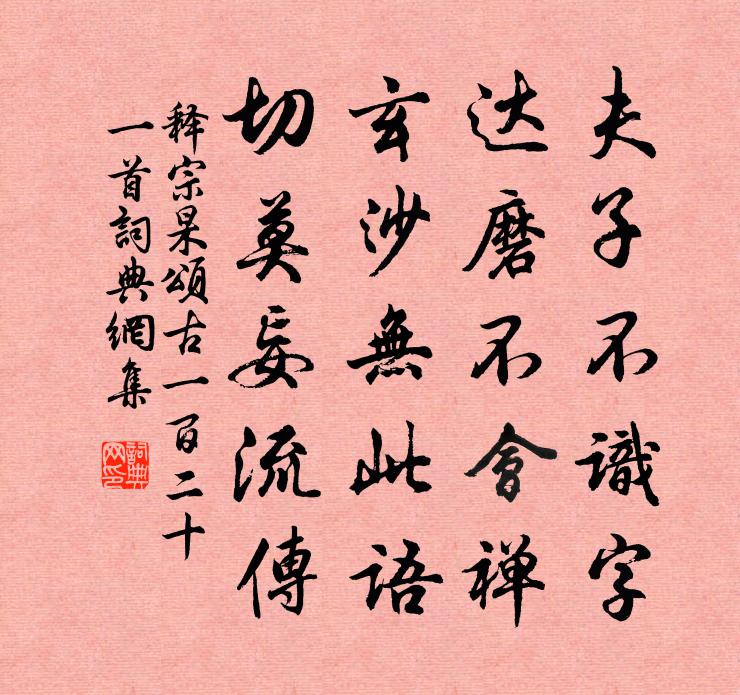 夫子不識字
达磨不會禅
玄沙無此語
切莫妄流傳
释宗杲頌古一百二十
一首詞典網集
詞典网印